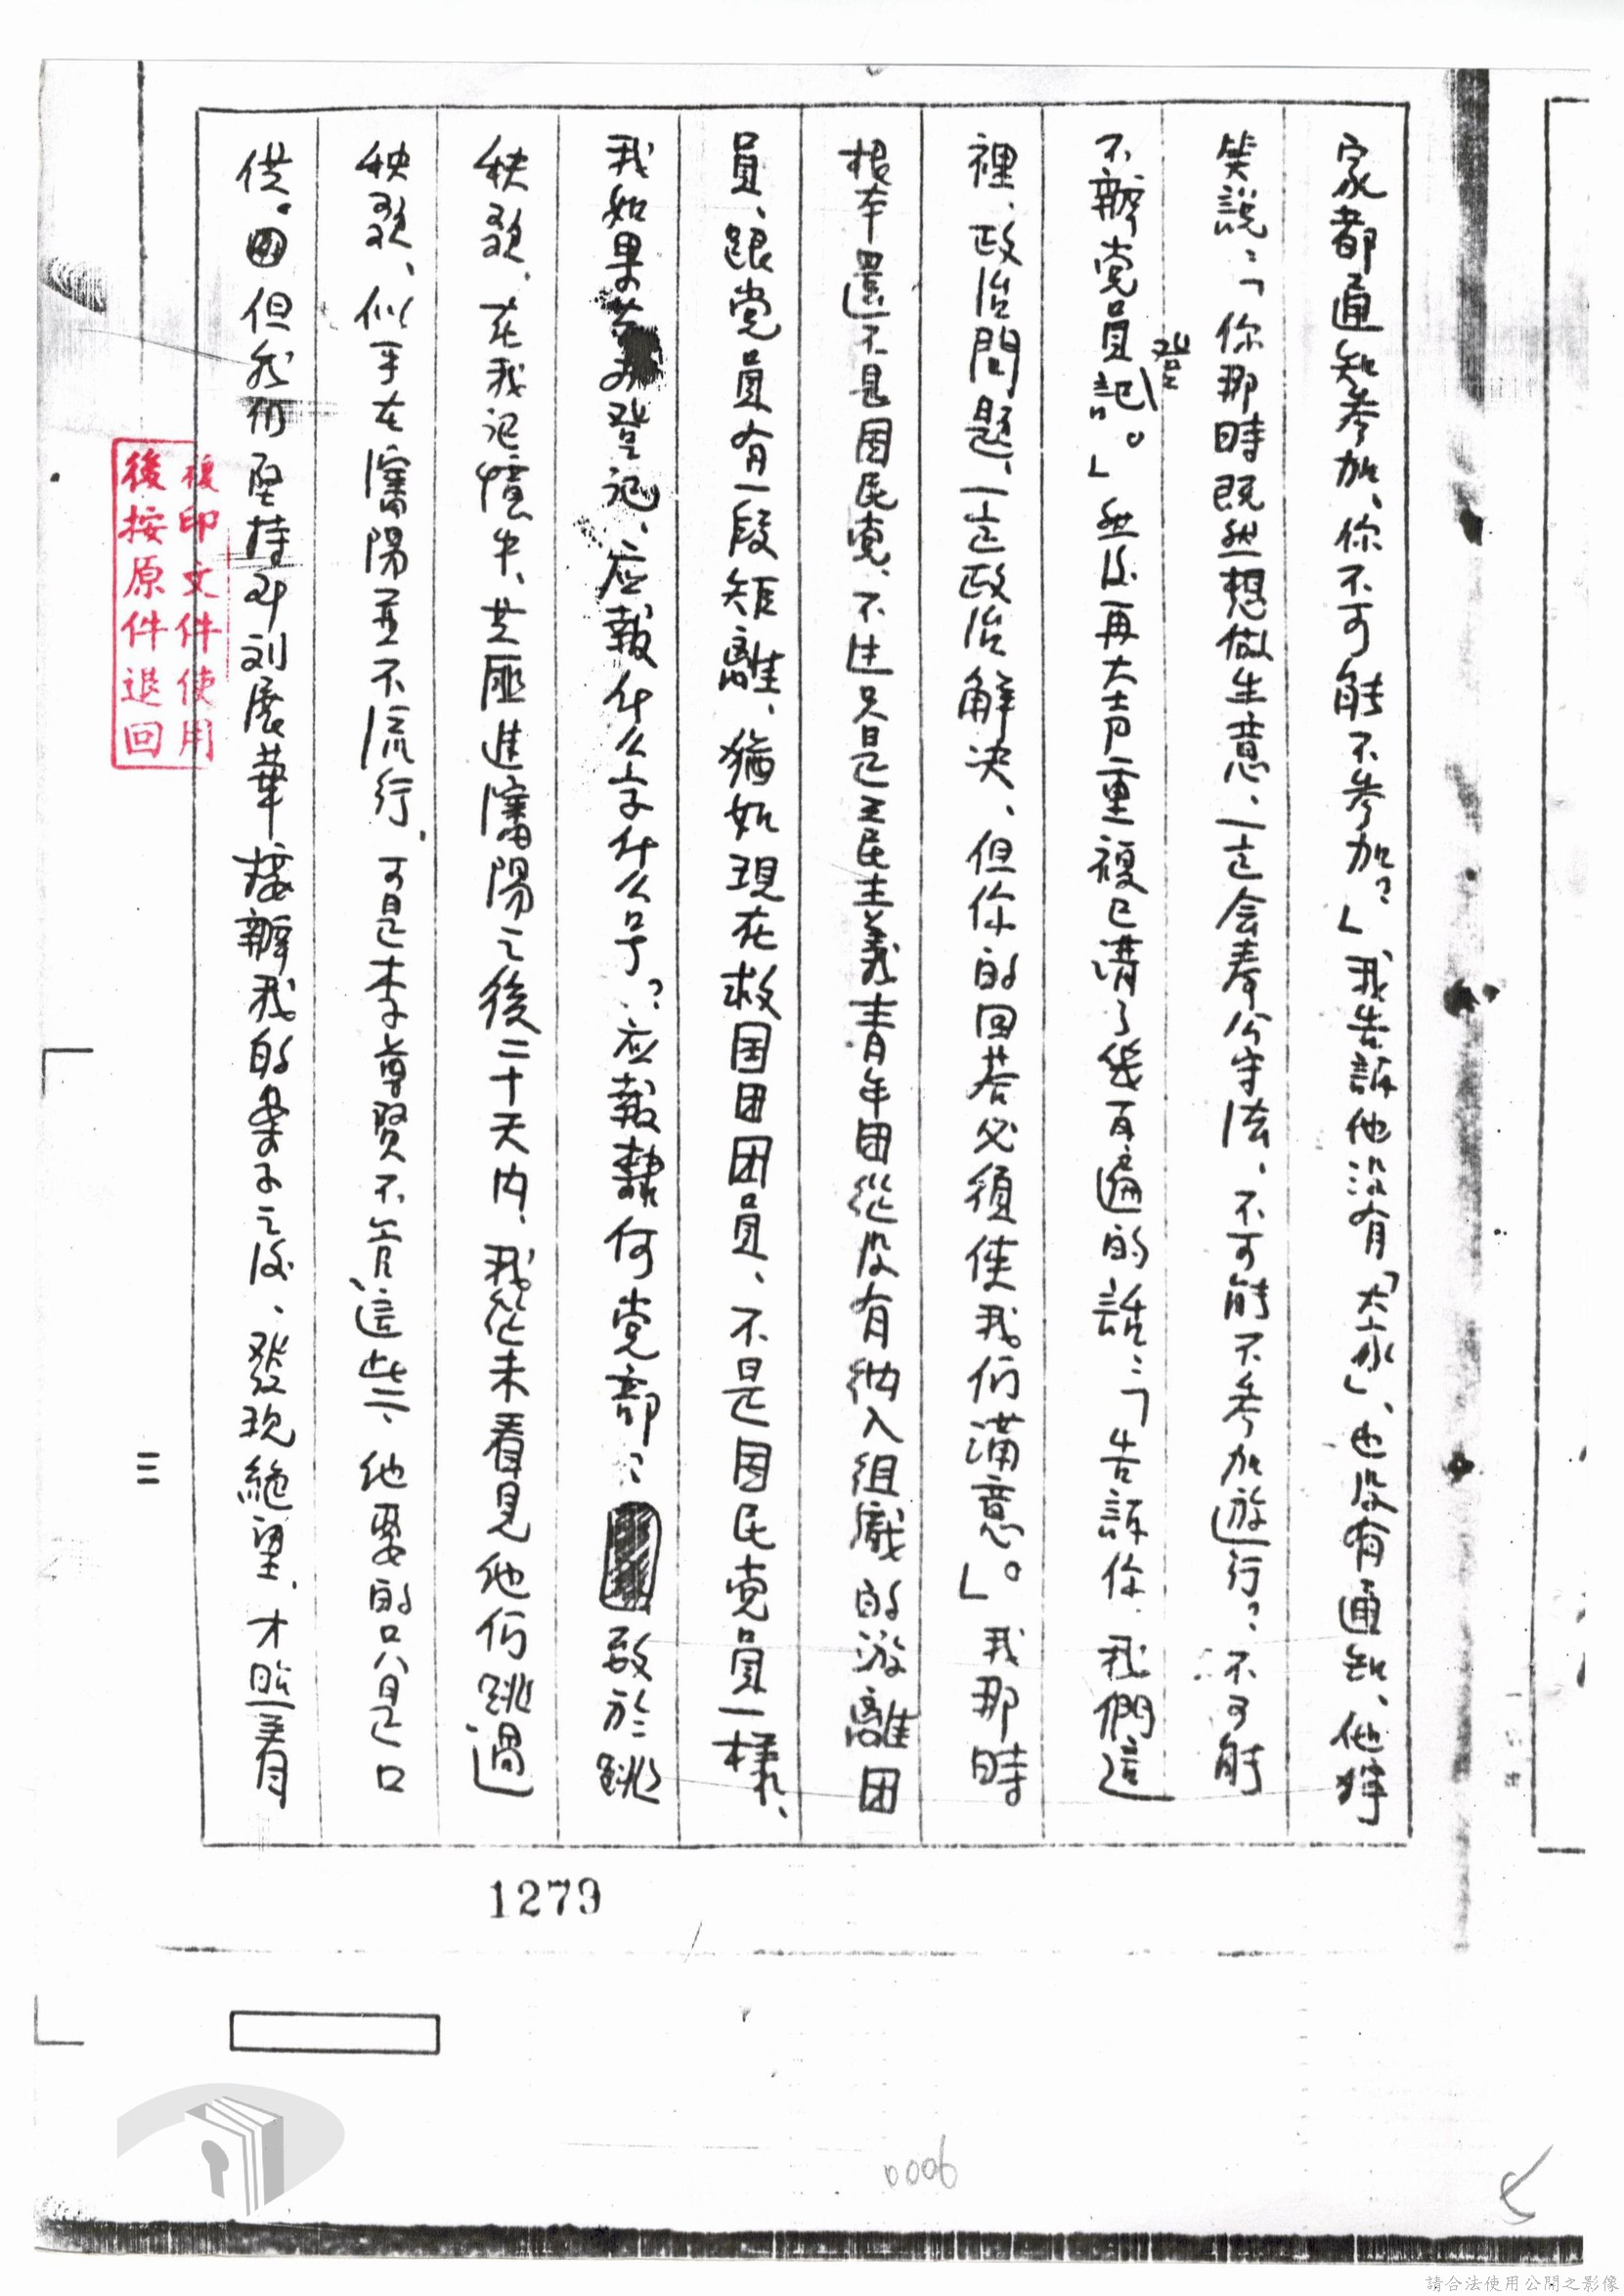 家都通知参加、你不可能不参加?」我告訴他沒有「大衣」、也沒有通知、他獰
笑說:「你那時既然想做生意、一定会奉公守法、不可能不参加遊行?不可能
不辦党員登記。」然后再大声重複已講了幾百遍的話:「告訴你、我們這
裡、政治問題、一定政治解決、但你的回答必須使我们滿意。」我那時
根本還不是国民党、不过只是三民主義青年团從沒有納入組織的游離团
員、跟党員有一段矩離、猶如現在救国团团員、不是国民党員一樣、
我如果去办登記、应報什么字什么号?应報隸何党部?致於跳
秧歌、在我记憶中、共匪進瀋陽之後二十天内、我從未看見他们跳過
秧歌、似乎在瀋陽並不流行、可是李尊賢不管這些、他要的只是口
供。但我仍堅持到刘展華接辦我的案子之后、發现絶望、才照着
三
複印文件使用
後按原件退回
1279
0006
請合法使用公開之影像